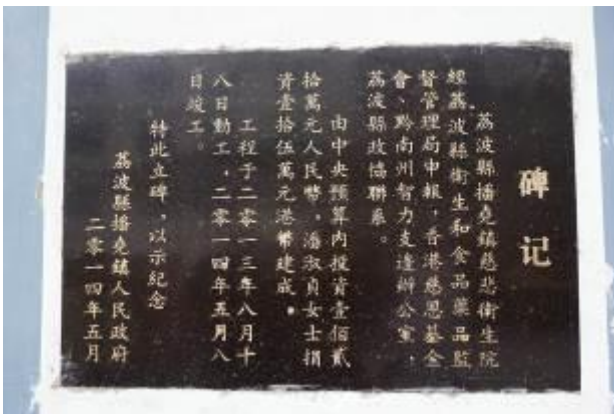 碑记
荔波縣播堯鎮慈悲衛生院
經荔波縣衛生和食品藥品監
督管理局申報，香港慈恩基金
會、黔南州智力支邊辦公室、
荔波縣政協聯系。
由中央預算内投資壹佰貳
拾萬元人民幣，潘淑貞女士捐
資壹拾伍萬元港幣建成。
工程于二零一三年八月十
八日動工，二零一四年五月八
日竣工。
特此立碑，以示紀念
荔波縣播堯鎮人民政府
二零一四年五月